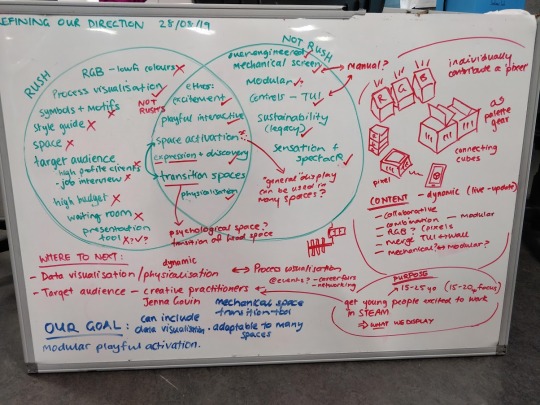 DEFINING OUR DIRECTION 28/08/19
RUSH
RGB - lowfi colours X
Process visualisation ✓
symbols + motifs X
style guide X
space X
target audience
high profile clients
- job interview X
high budget X
waiting room X
presentation
tool X? ✓?
NOT RUSH'S
ethos:
excitement ✓
playful interactive ✓
space activation
expression + discovery ✓
transition spaces
physicalisation ✓
psychological space?
transition of head space
NOT RUSH
overengineered/
mechanical screen ✓
modular ✓
controls - TUI ✓
sustainability
(legacy) ✓
sensation +
spectacle ✓
"general" display
can be used in
many spaces?
manual?
individually
contribute a pixel
R G B
a palette
gear
connecting
cubes
pixel
CONTENT - dynamic (live-update)
- collaborative
- combination - modular
- RGB? (pixels
- merge TUI + wall
- mechanical? + modular?
PURPOSE
15-25yo (15-20 focus)
get young people excited to work
in STEAM
⇒ WHAT WE DISPLAY
WHERE TO NEXT:
dynamic
- Data visualisation/physicalisation ↔ Process visualisation
- Target audience - creative practitioners
@events? - career fairs
- networking
mechanical space
transition-tool
OUR GOAL:
can include
data visualisation. adaptable to many
spaces
modular playful activation.